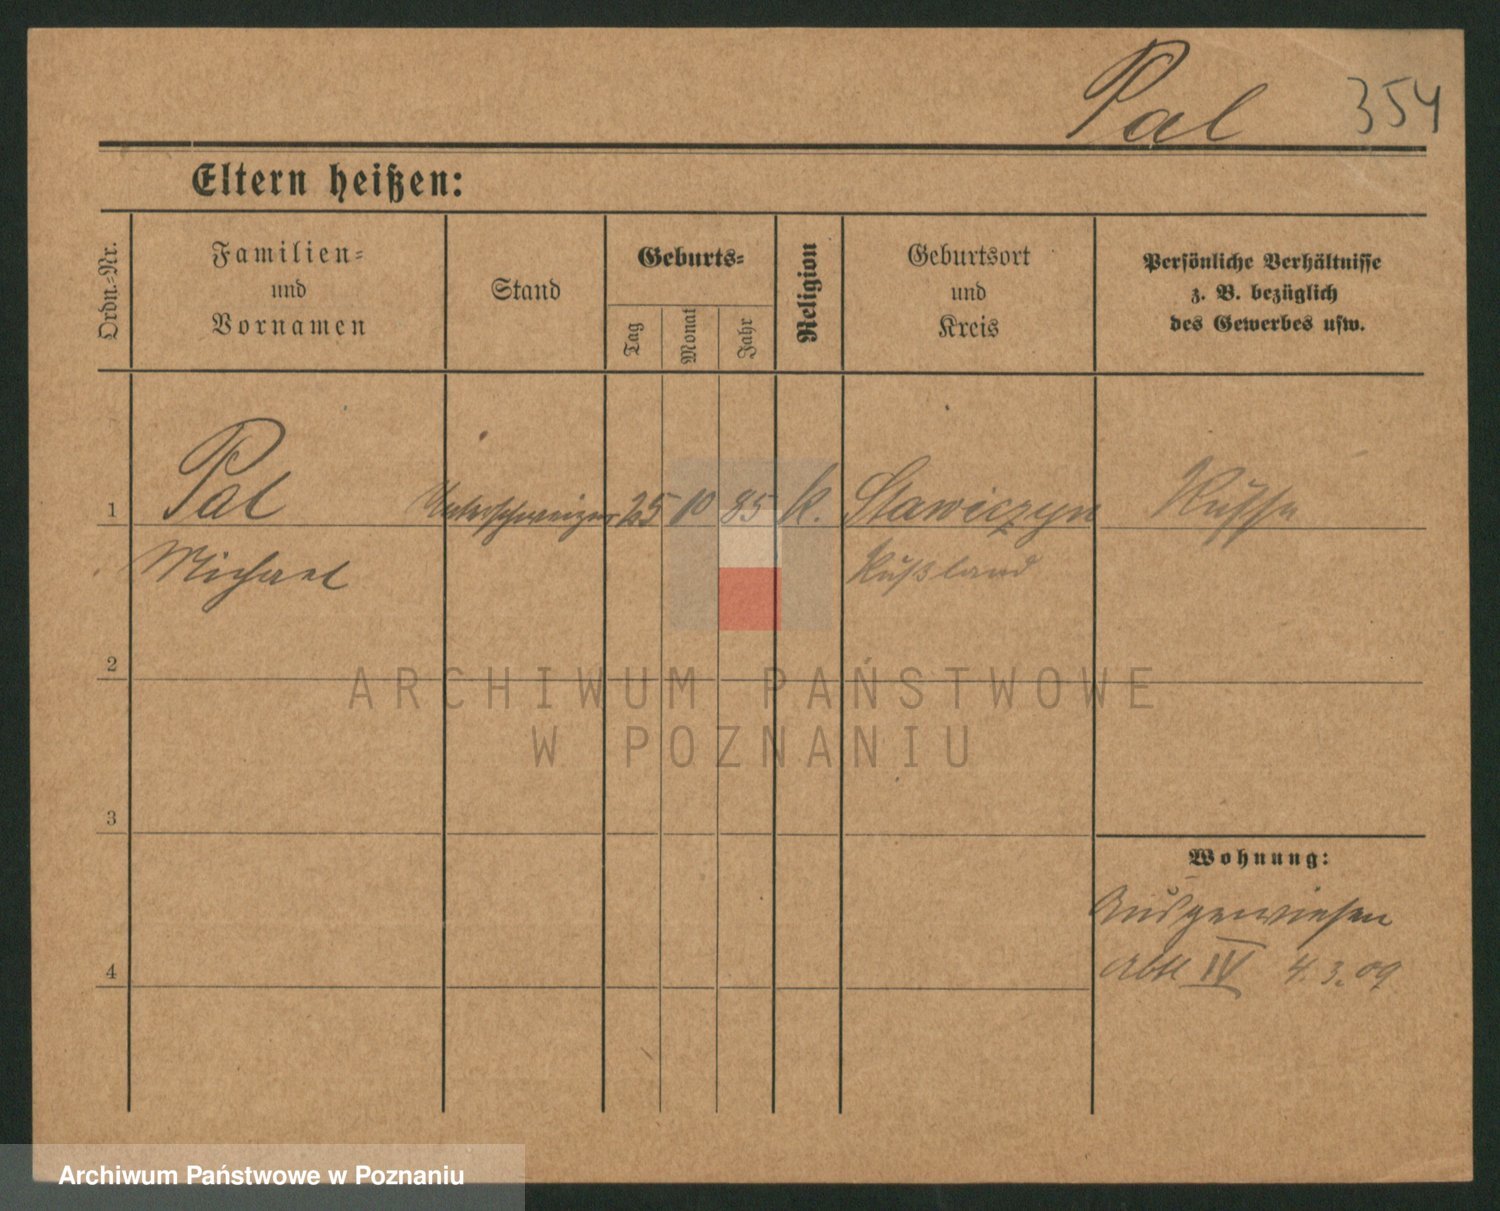 Pal 354
Eltern heißen:
Ordn.-Nr.
Familien-
und
Vornamen
Stand
Geburts-
Tag
Monat
Jahr
Religion
Geburtsort
und
Kreis
Persönliche Verhältnisse
z. B. bezüglich
des Gewerbes usw.
1 Pal Unterschweizer 25 10 85 K. Stawiczyn Russe
Michael Rußland
2
ARCHIWUM PAŃSTWOWE
W POZNANIU
3
Wohnung:
Ausgewiesen
4 Abtl IV 4.3.09
Archiwum Państwowe w Poznaniu